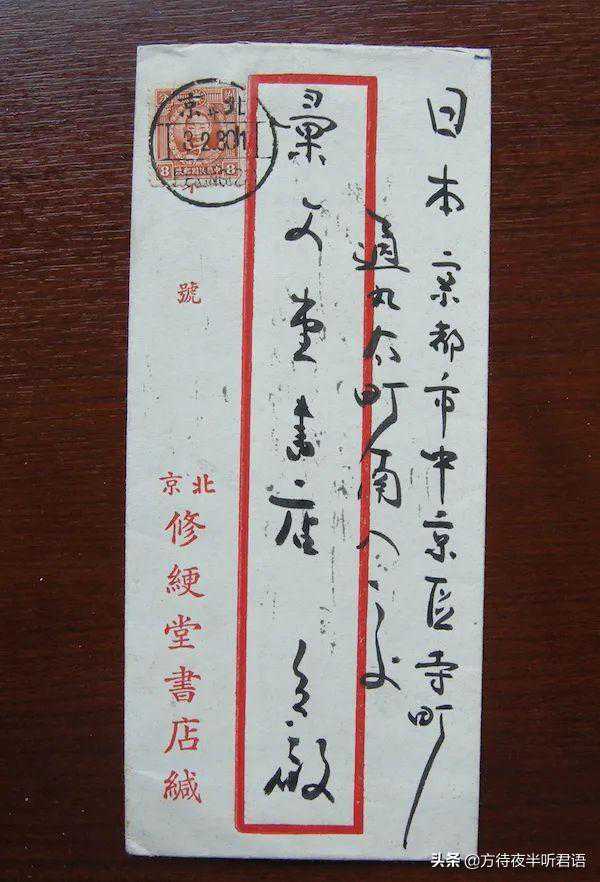 日本京都市中京区寺町
通丸太町南入
彙文堂書店 台啟
北京
8 8
號
北京
修綆堂書店緘
头条 @方待夜半听君语